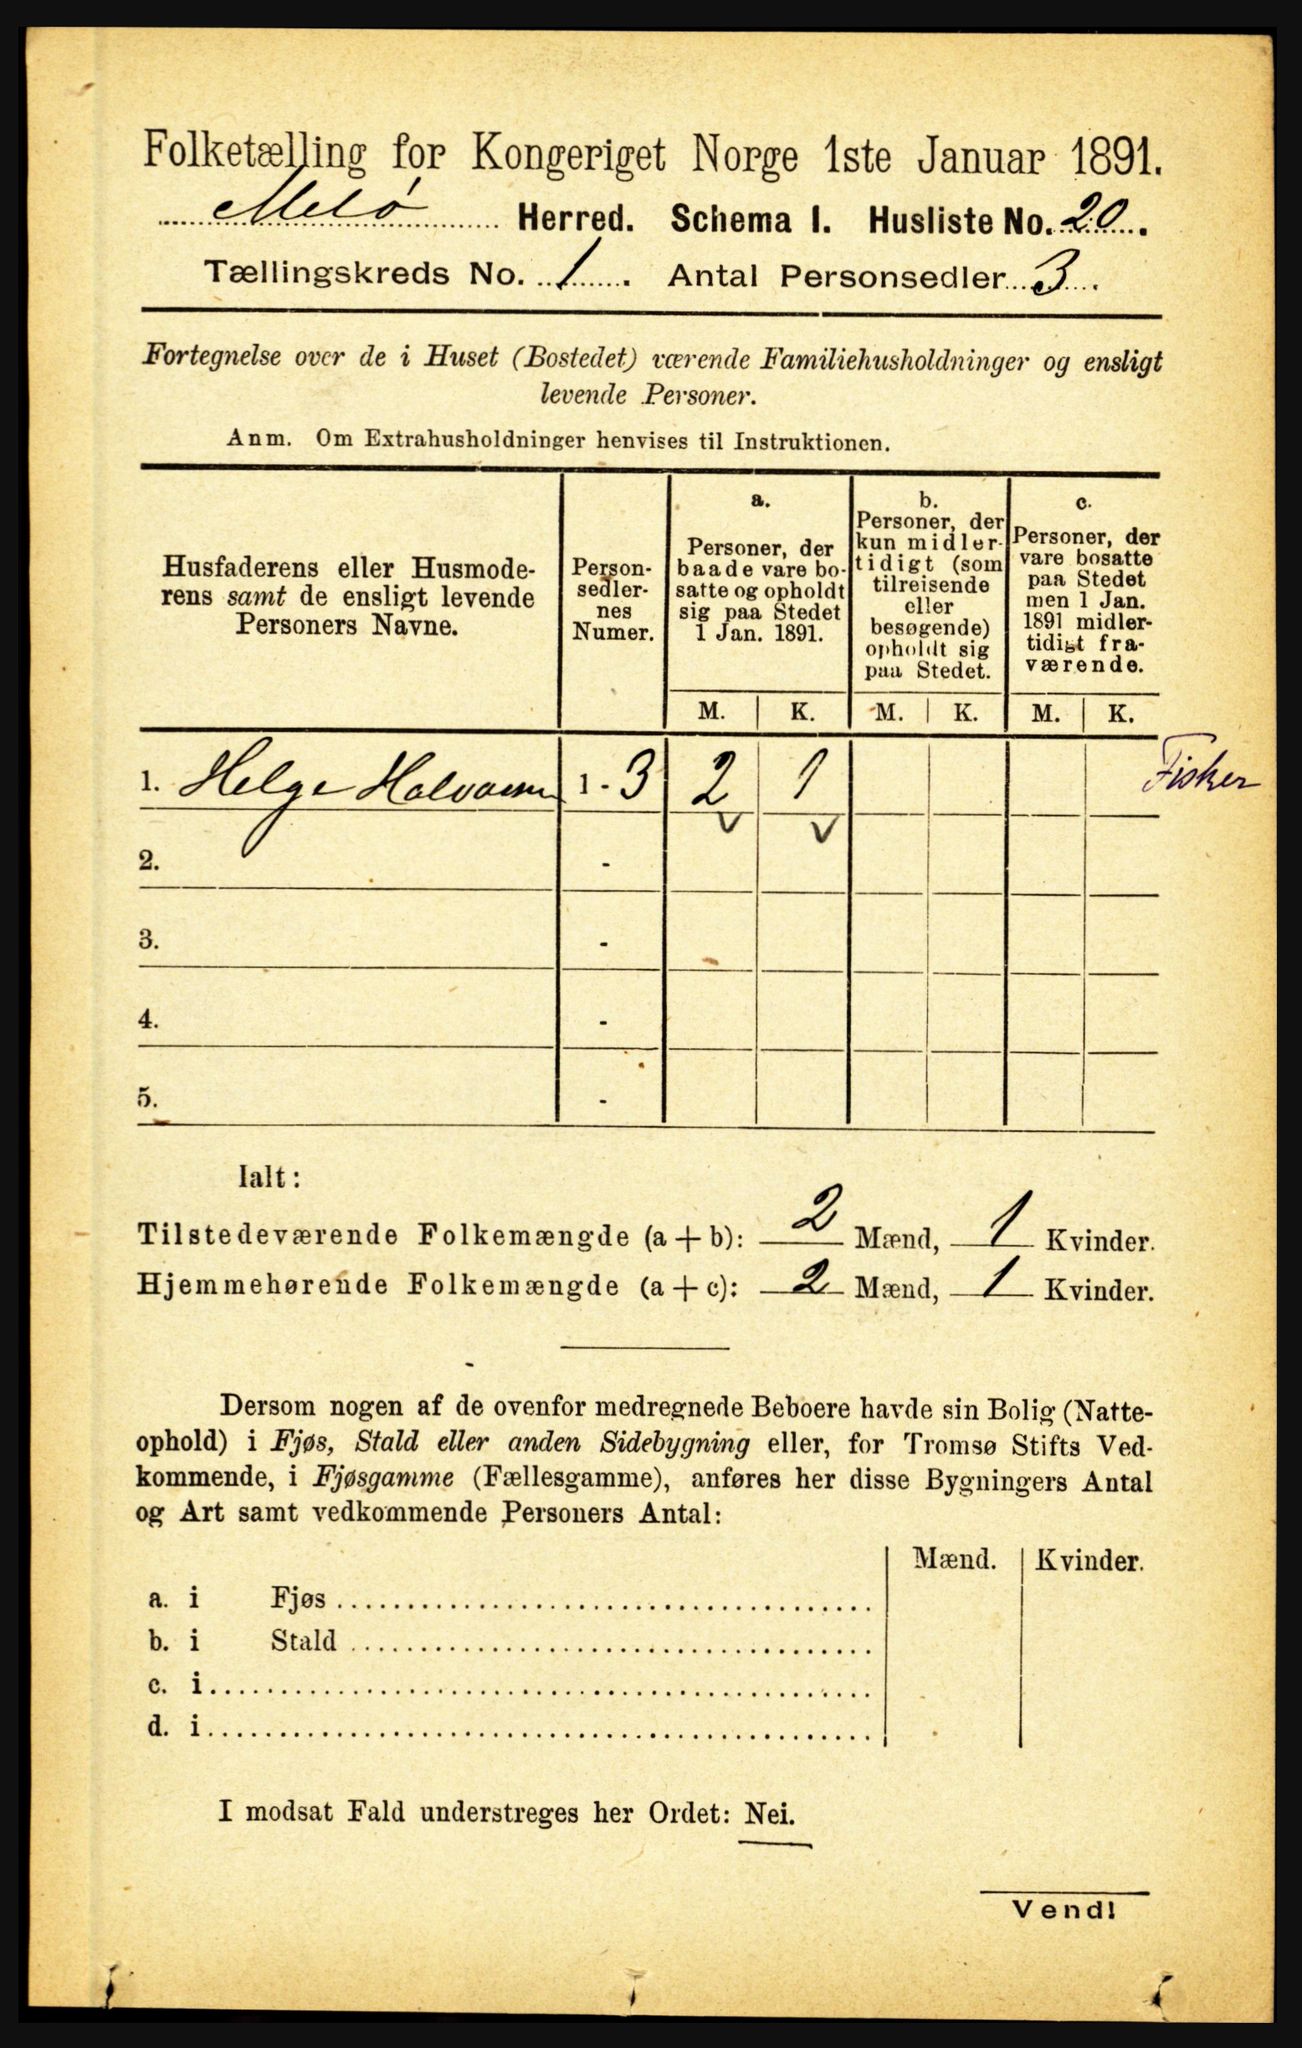 Folketælling for Kongeriget Norge 1ste Januar 1891.
Melø Herred. Schema I. Husliste No. 20.
Tællingskreds No. 1. Antal Personsedler 3.
Fortegnelse over de i Huset (Bostedet) værende Familiehusholdninger og ensligt
levende Personer.
Anm. Om Extrahusholdninger henvises til Instruktionen.
Husfaderens eller Husmode-
rens samt de ensligt levende
Personers Navne.
Person-
sedler-
nes
Numer.
a.
Personer, der
baade vare bo-
satte og opholdt
sig paa Stedet
1 Jan. 1891.
b.
Personer, der
kun midler-
tidigt (som
tilreisende
eller
besøgende)
opholdt sig
paa Stedet.
c.
Personer, der
vare bosatte
paa Stedet
men 1 Jan.
1891 midler-
tidigt fra-
værende.
M. K. M. K. M. K.
1. Helge 1 - 3 2 1 Fisker
2. -
3. -
4. -
5. -
Ialt:
Tilstedeværende Folkemængde (a + b): 2 Mænd, 1 Kvinder.
Hjemmehørende Folkemængde (a + c): 2 Mænd, 1 Kvinder.
Dersom nogen af de ovenfor medregnede Beboere havde sin Bolig (Natte-
ophold) i Fjøs, Stald eller anden Sidebygning eller, for Tromsø Stifts Ved-
kommende, i Fjøsgamme (Fællesgamme), anføres her disse Bygningers Antal
og Art samt vedkommende Personers Antal:
Mænd. Kvinder.
a. i Fjøs
b. i Stald
c. i
d. i
I modsat Fald understreges her Ordet: Nei.
Vend!